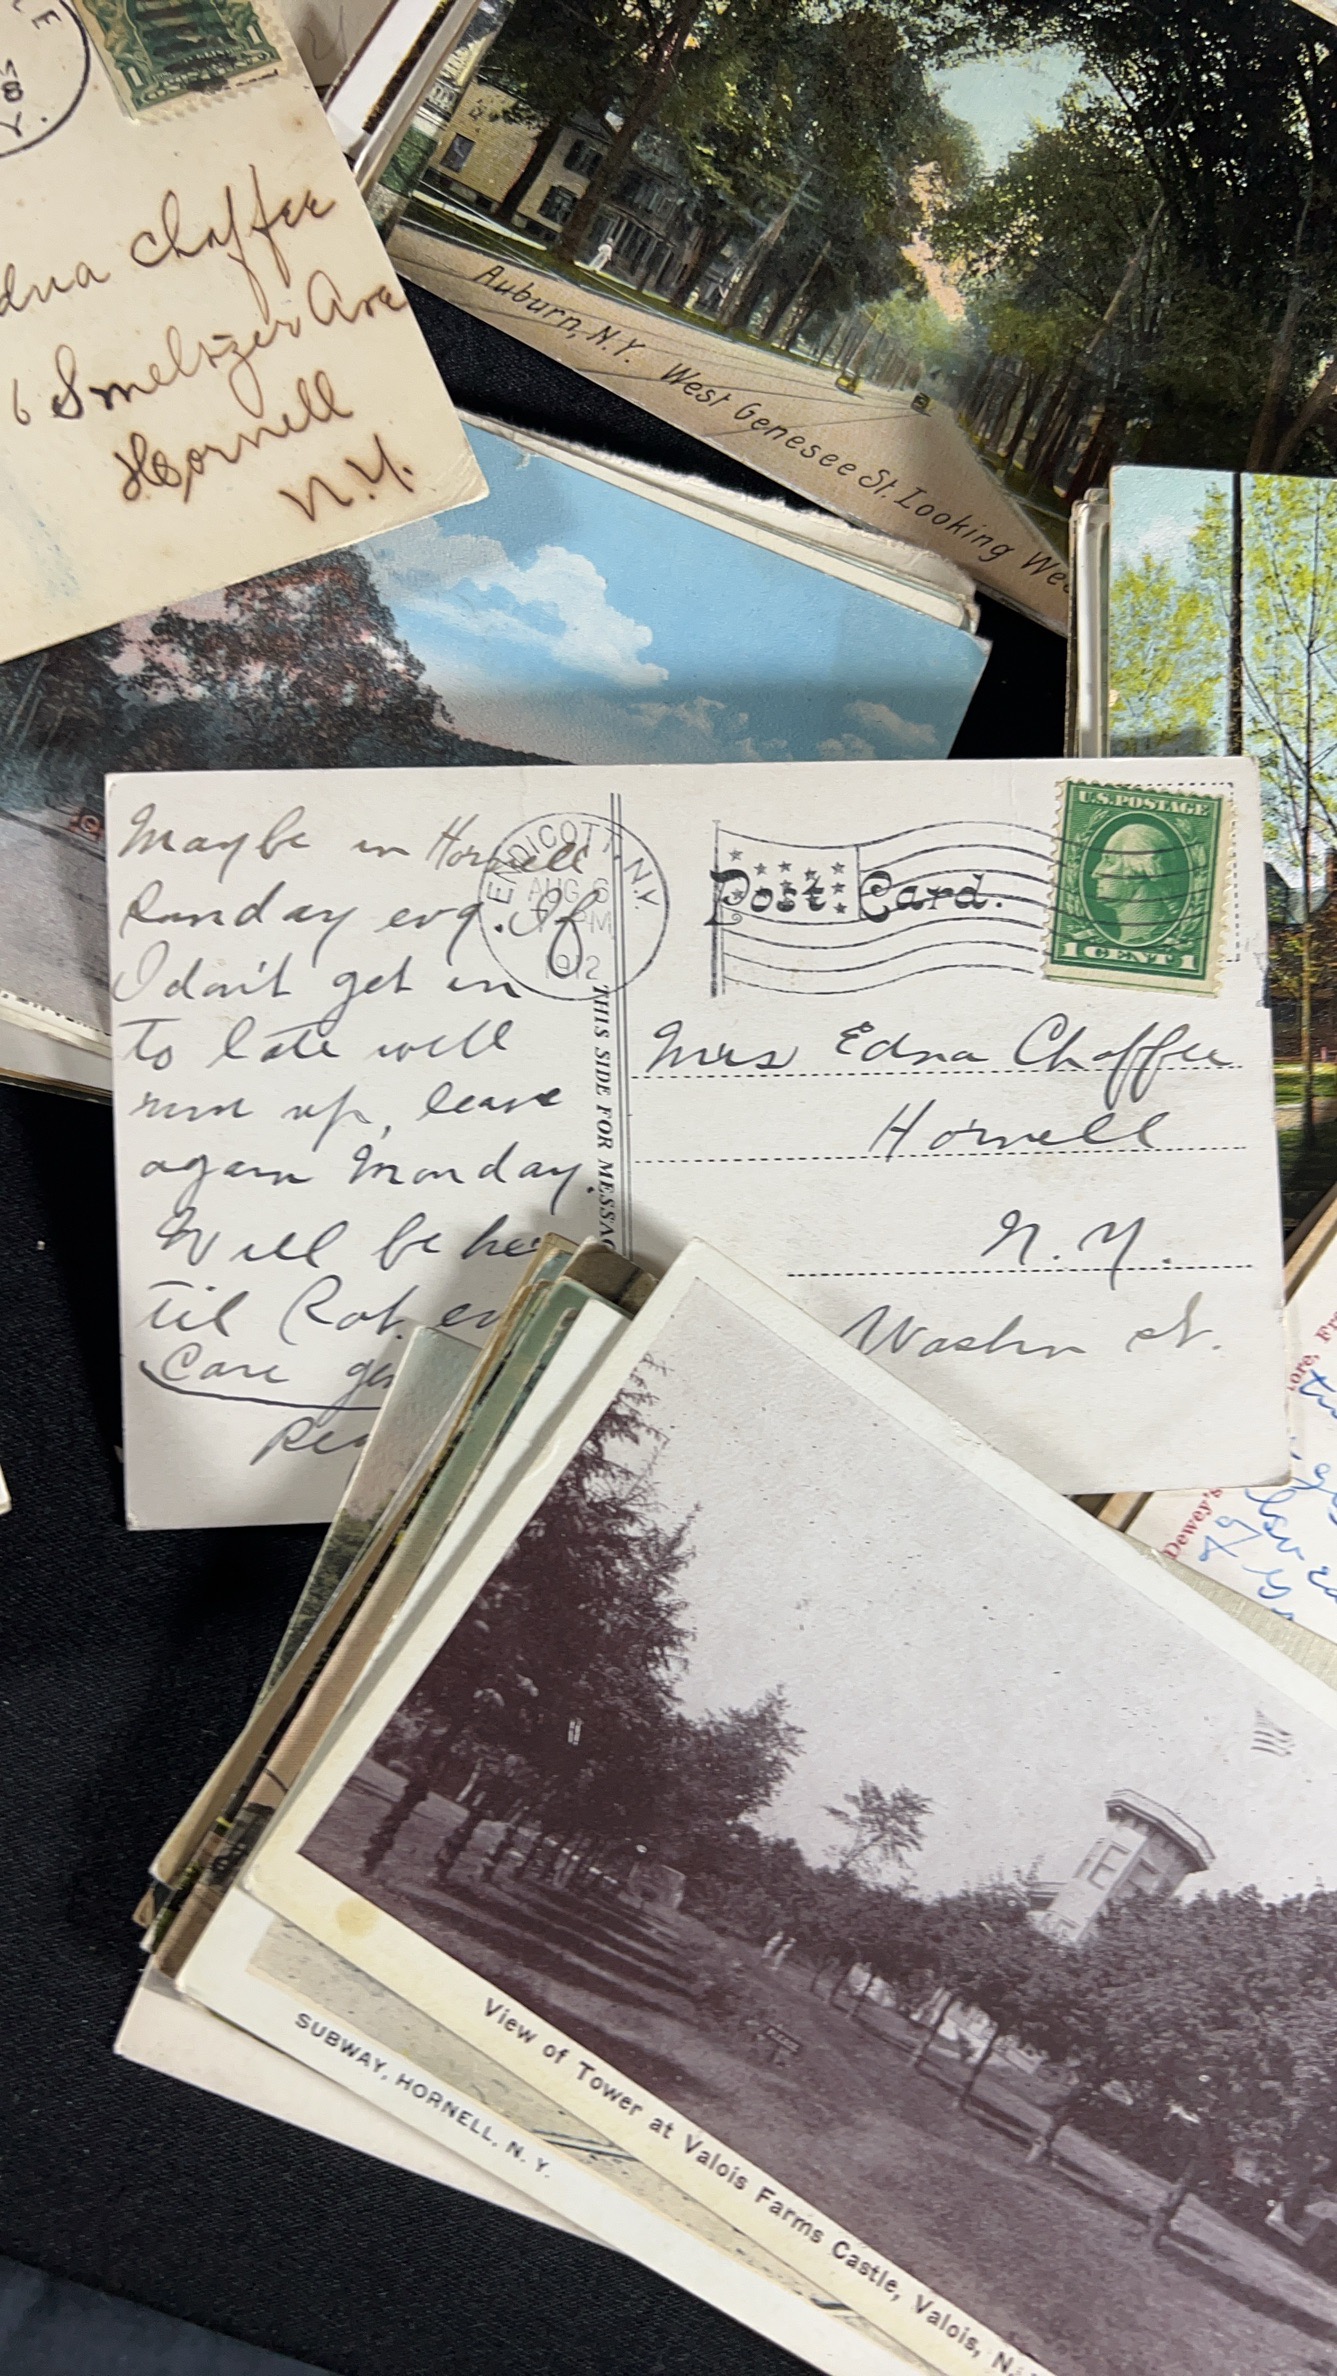 LE
8
Y.
1 CENT 1
dna Chaffee
6 Smeltzer Ave
Hornell
N.Y.
Auburn, N.Y. West Genesee St. Looking We
Maybe in Hornell
Sunday evg. If
I don't get in
to late will
run up, leave
again Monday.
Will be he
til Sat. ev
Care gen
ENDICOTT, N.Y.
AUG 6
PM
1912
THIS SIDE FOR MESSAG
Post Card.
U.S. POSTAGE
1 CENT 1
Mrs Edna Chaffee
Hornell
N.Y.
Washn St.
ore, Fr
Dewey's
SUBWAY, HORNELL, N. Y.
View of Tower at Valois Farms Castle, Valois, N.